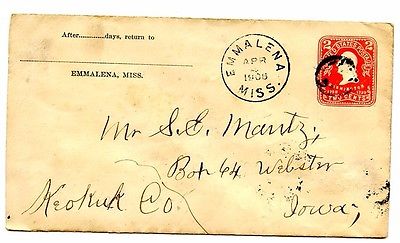 After............days, return to
EMMALENA, MISS.
EMMALENA
APR
1908
MISS.
2 U.S. POSTAGE 2
TWO CENTS
Mr S. E. Mantz,
Box 64 Webster
Keokuk Co. Iowa,